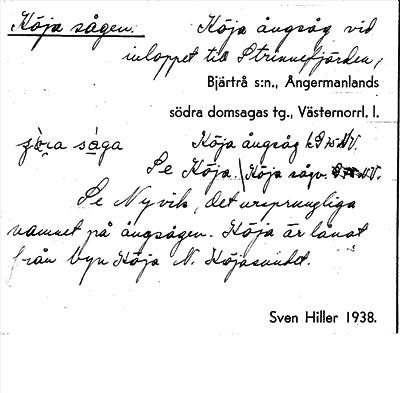 Köja sågen. Köja ångsåg vid
inloppet till Strinnefjärden,
Bjärtrå s:n., Ångermanlands
södra domsagas tg., Västernorrl. l.
Köja ångsåg
Se Köja. Köja sågv.
Se Nyvik, det ursprungliga
namnet på ångsågen. Köja är lånat
från byn Köja N. Köjasundet.
Sven Hiller 1938.